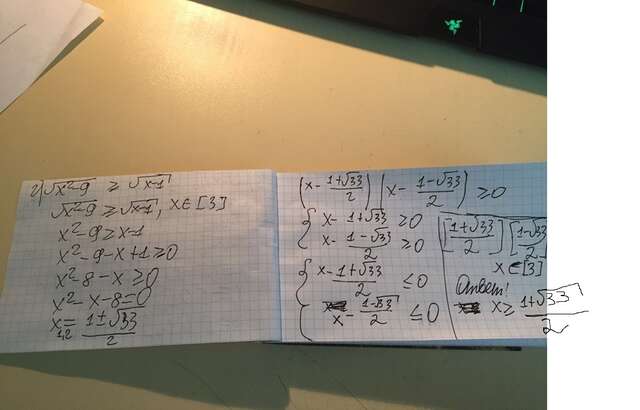 2) √x²-9 ≥ √x-1
√x²-9 ≥ √x-1, x∈[3]
x²-9≥x-1
x²-9-x+1≥0
x²-8-x≥0
x²-x-8=0
x₁,₂= 1±√33 / 2
(x- 1+√33 / 2) (x- 1-√33 / 2) ≥0
{ x- 1+√33 / 2 ≥0
x- 1-√33 / 2 ≥0
{ x- 1+√33 / 2 ≤0
x- 1-√33 / 2 ≤0
[1+√33 / 2] [1-√33 / 2]
x∈[3]
Ответ!
x≥ 1+√33 / 2